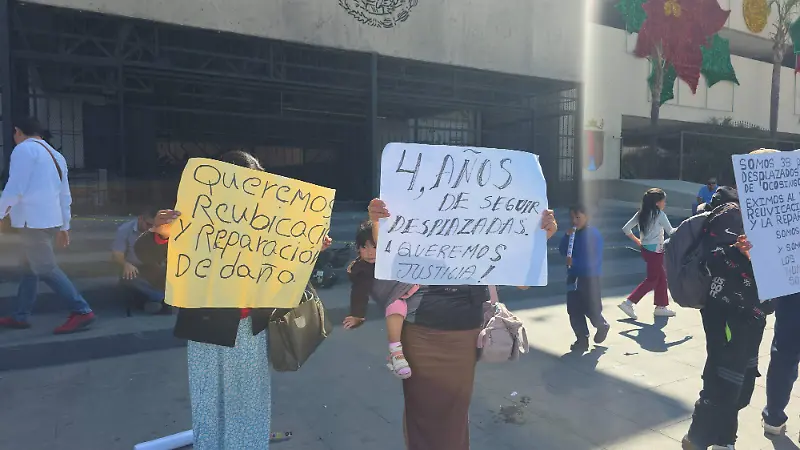 Queremos
Reubicaci
y Reparación
De daño.
4, AÑOS
DE SEGUIR
DESPLAZADAS.
¡QUEREMOS
JUSTICIA!
SOMOS 38
DESPLAZADOS
OCOSINGO
EXIMOS AL
REUVICAC
Y LA REPA
SOMOS
LOS